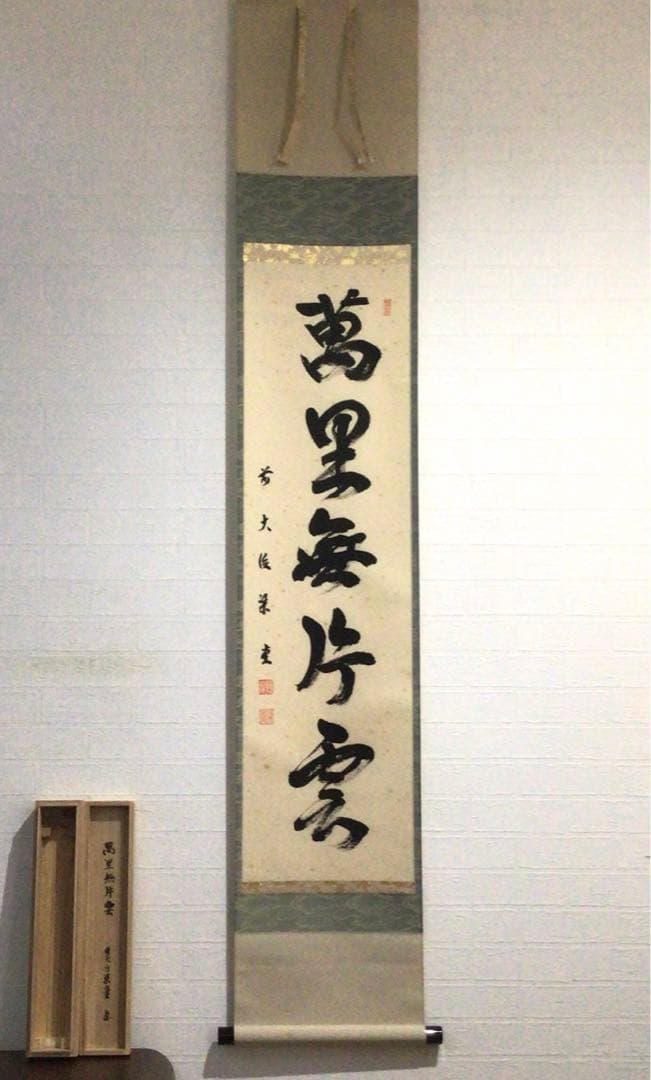 萬里無片雲
前大徳
萬里無片雲